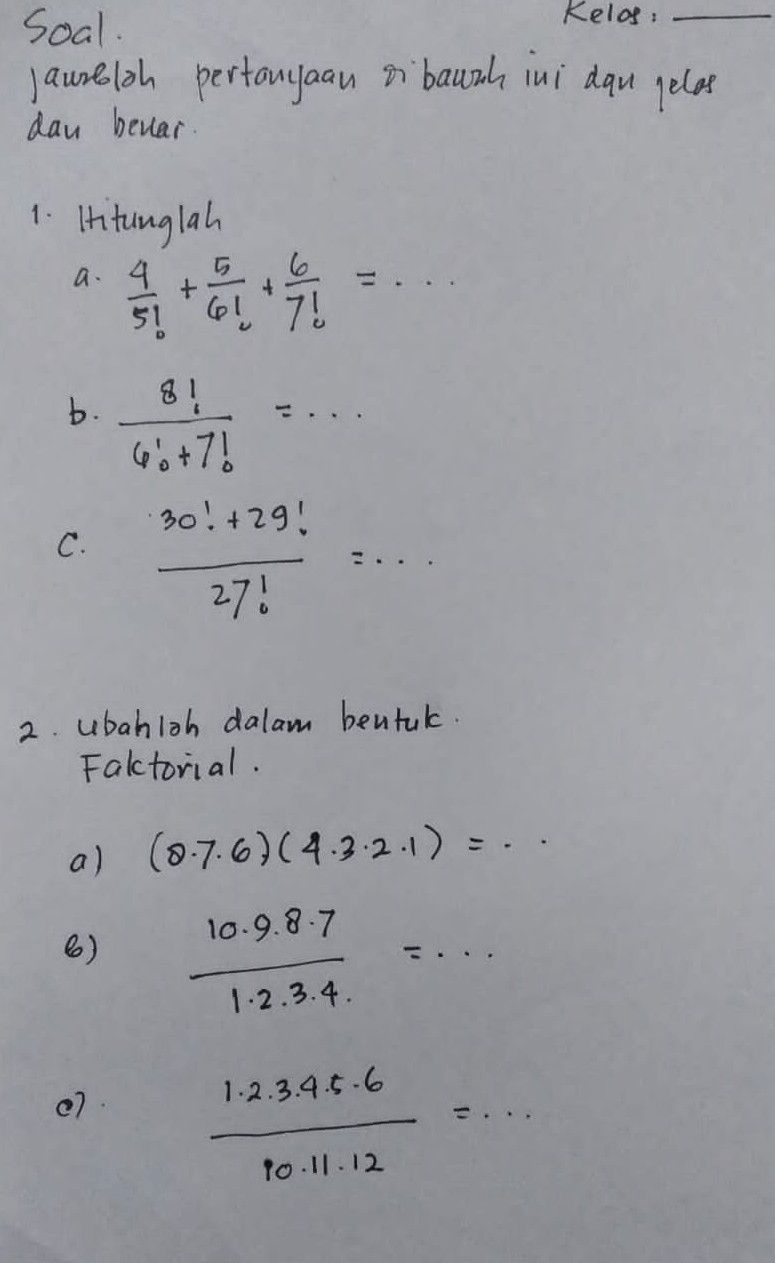 Soal.
Kelas: ____
jawablah pertanyaan di bawah ini dgn jelas
dan benar.
1. Hitunglah
a. 4/5! + 5/6! + 6/7! = ...
b. 8!/(6!+7!) = ...
c. (30!+29!)/27! = ...
2. Ubahlah dalam bentuk.
Faktorial.
a) (8.7.6)(4.3.2.1) = ..
b) 10.9.8.7/1.2.3.4. = ...
c). 1.2.3.4.5.6/10.11.12 = ...